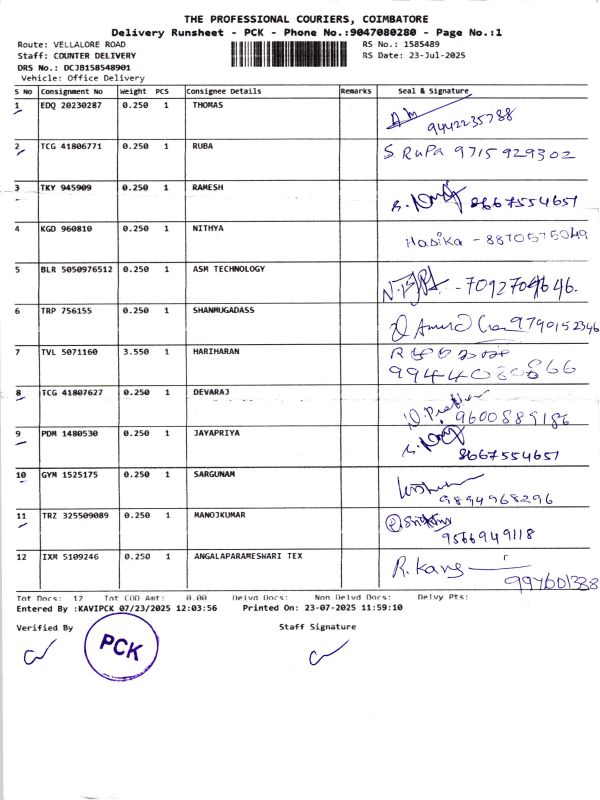 THE PROFESSIONAL COURIERS, COIMBATORE
Delivery Runsheet - PCK - Phone No.:9047080280 - Page No.:1
Route: VELLALORE ROAD RS No.: 1585489
Staff: COUNTER DELIVERY RS Date: 23-Jul-2025
DRS No.: DCJB158548901
Vehicle: Office Delivery
S No Consignment No Weight PCS Consignee Details Remarks Seal & Signature
1 EDQ 20230287 0.250 1 THOMAS
9442235788
2 TCG 41806771 0.250 1 RUBA S RuPa 9715929302
3 TKY 945909 0.250 1 RAMESH 8667554651
4 KGD 960810 0.250 1 NITHYA Hasika - 8870575049
5 BLR 5050976512 0.250 1 ASM TECHNOLOGY
6 TRP 756155 0.250 1 SHANMUGADASS 9790152346
7 TVL 5071160 3.550 1 HARIHARAN
8 TCG 41807627 0.250 1 DEVARAJ
9600889186
9 PDM 1480530 0.250 1 JAYAPRIYA
8667554651
10 GYM 1525175 0.250 1 SARGUNAM
9894968296
11 TRZ 325509089 0.250 1 MANOJKUMAR
9566949118
12 IXM 5109246 0.250 1 ANGALAPARAMESWARI TEX R. Kang
Tot Docs: 12 Tot COD Amt: 0.00 Delvd Docs: Non Delvd Docs: Delvy Pts:
Entered By :KAVIPCK 07/23/2025 12:03:56 Printed On: 23-07-2025 11:59:10
Verified By Staff Signature
PCK